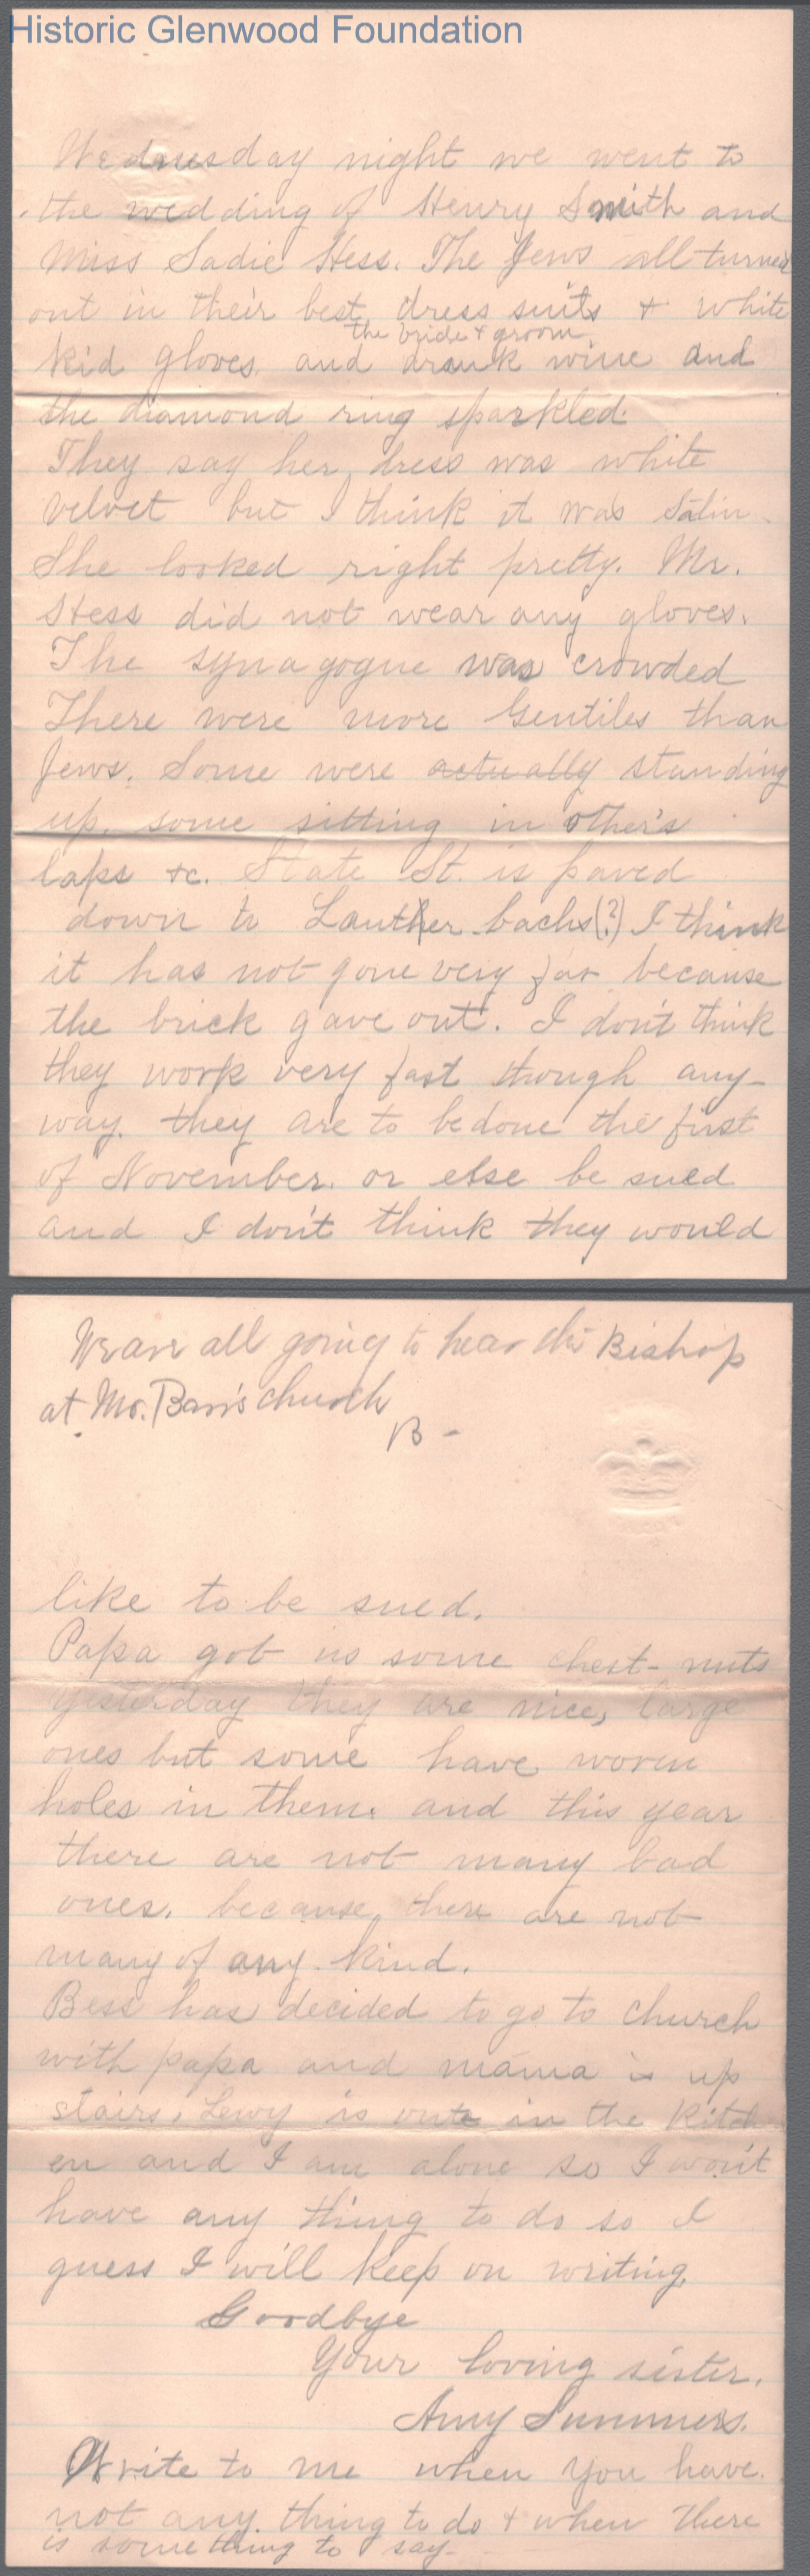 Historic Glenwood Foundation
Wednesday night we went to
the wedding of Henry Smith and
Miss Sadie Hess. The Jews all turned
out in their best, dress suits & white
the bride & groom
kid gloves, and drank wine and
the diamond ring sparkled.
They say her dress was white
velvet but I think it was satin.
She looked right pretty. Mr.
Hess did not wear any gloves.
The synagogue was crowded
There were more Gentiles than
Jews. Some were actually standing
up, some sitting in other's
laps &c. State St. is paved
down to Lauther bachs(?) I think
it has not gone very far because
the brick gave out. I don't think
they work very fast though any-
way. they are to be done the first
of November. or else be sued
and I don't think they would
We are all going to hear the Bishop
at Mr. Barr's church
B -
like to be sued.
Papa got us some chest-nuts
yesterday they are nice, large
ones but some have worm
holes in them. and this year
there are not many bad
ones. because there are not
many of any kind.
Bess has decided to go to church
with papa and mama is up
stairs, Lewy is out in the kitch
en and I am alone so I won't
have any thing to do so I
guess I will keep on writing.
Goodbye
Your loving sister.
Amy Summers.
Write to me when you have
not any thing to do & when there
is something to say-